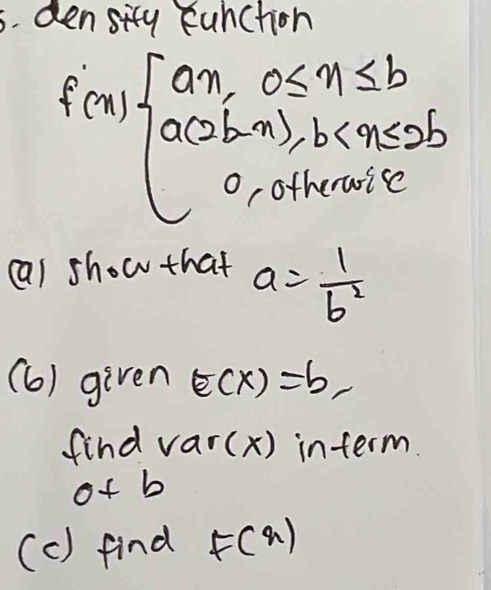 5. density function
f(x) { ax, 0≤x≤b
a(2b-x), b<x≤2b
0, otherwise
(a) show that a = 1/b²
(b) given E(X) = b,
find var(x) in term.
of b
(c) find F(x)